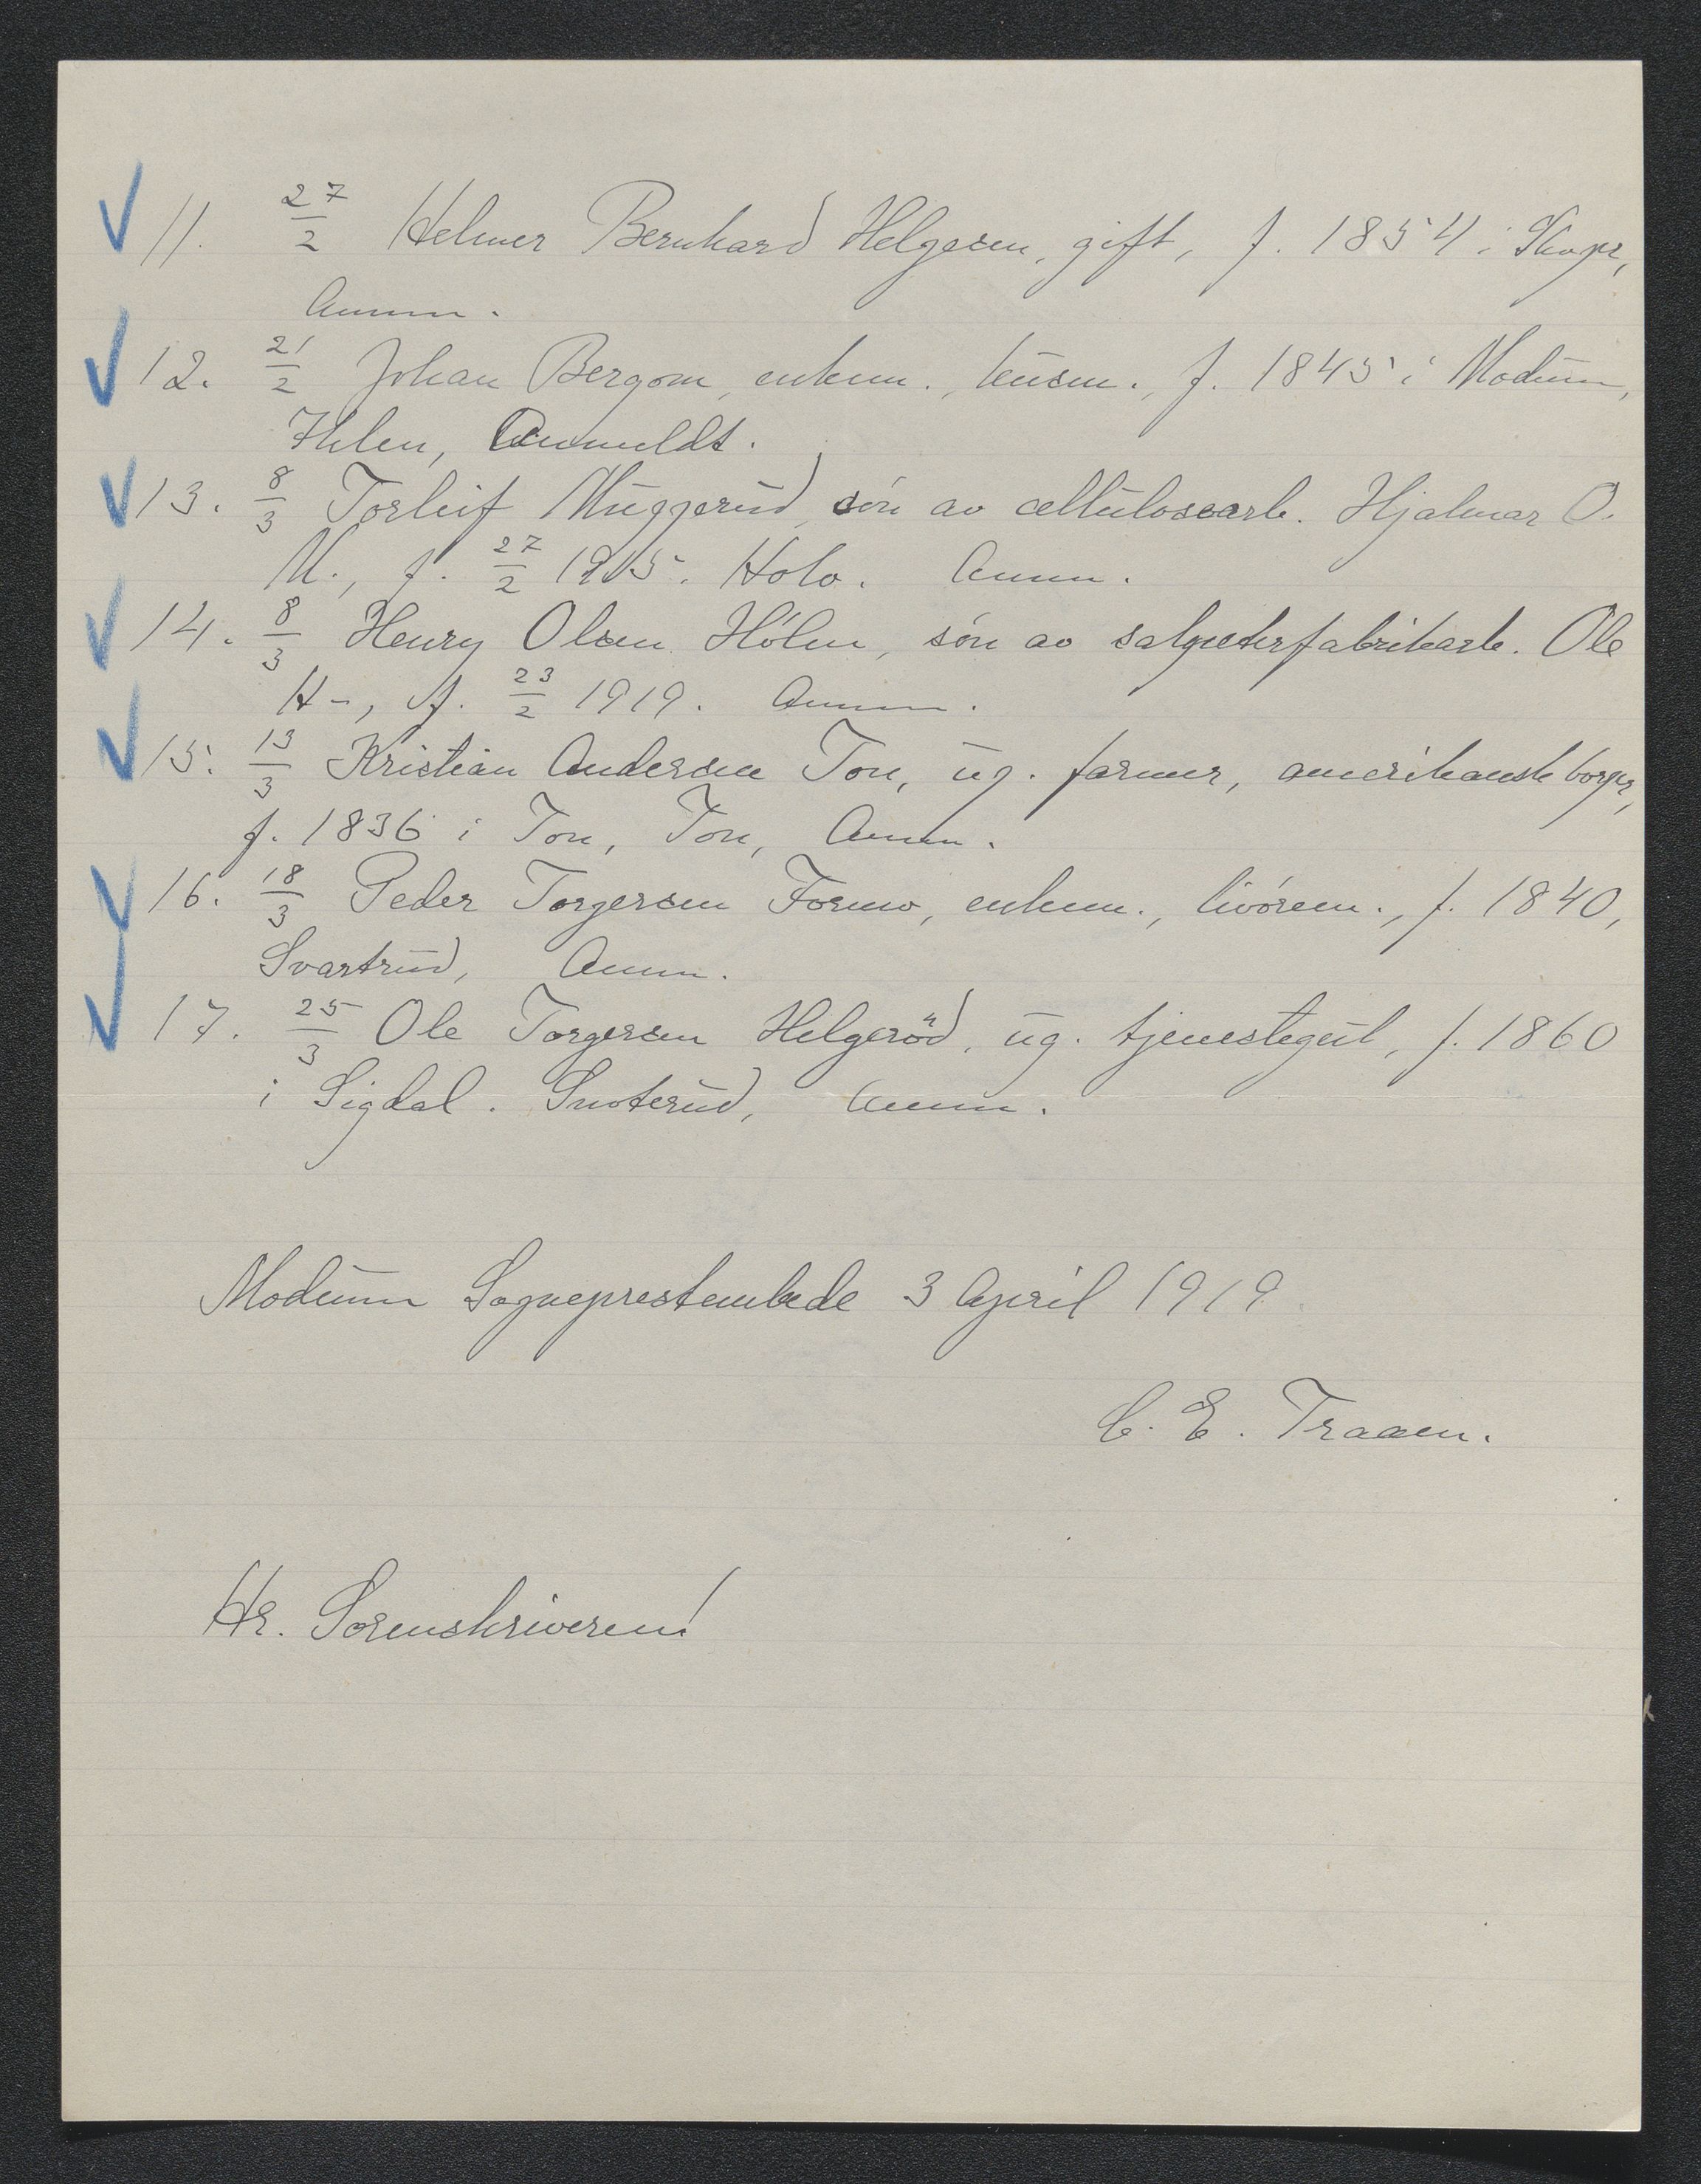 11. 27/2 Helmer Bernhard Helgesen, gift, f. 1854 i Skoger,
Anm.
12. 21/2 Johan Bergom, enkem., husm., f. 1845 i Modum,
Ihlen, Anmeldt.
13. 8/3 Torleif Muggerud, søn av cellulosearb. Hjalmar O.
M., f. 27/2 1915. Holo. Anm.
14. 8/3 Henry Olsen Hólm, søn av salpeterfabrikarb. Ole
H-, f. 23/2 1919. Anm.
15. 13/3 Kristian Andersen Ton, ug. farmer, amerikansk borger,
f. 1836 i Ton, Ton, Anm.
16. 18/3 Peder Torgersen Formo, enkem., livórem., f. 1840,
Svartrud, Anm.
17. 25/3 Ole Torgersen Helgerød, ug. tjenestegut, f. 1860
i Sigdal. Snoterud, Anm.
Modum Sogneprestembede 3 April 1919
C. E. Traaen.
Hr. Sorenskriveren!